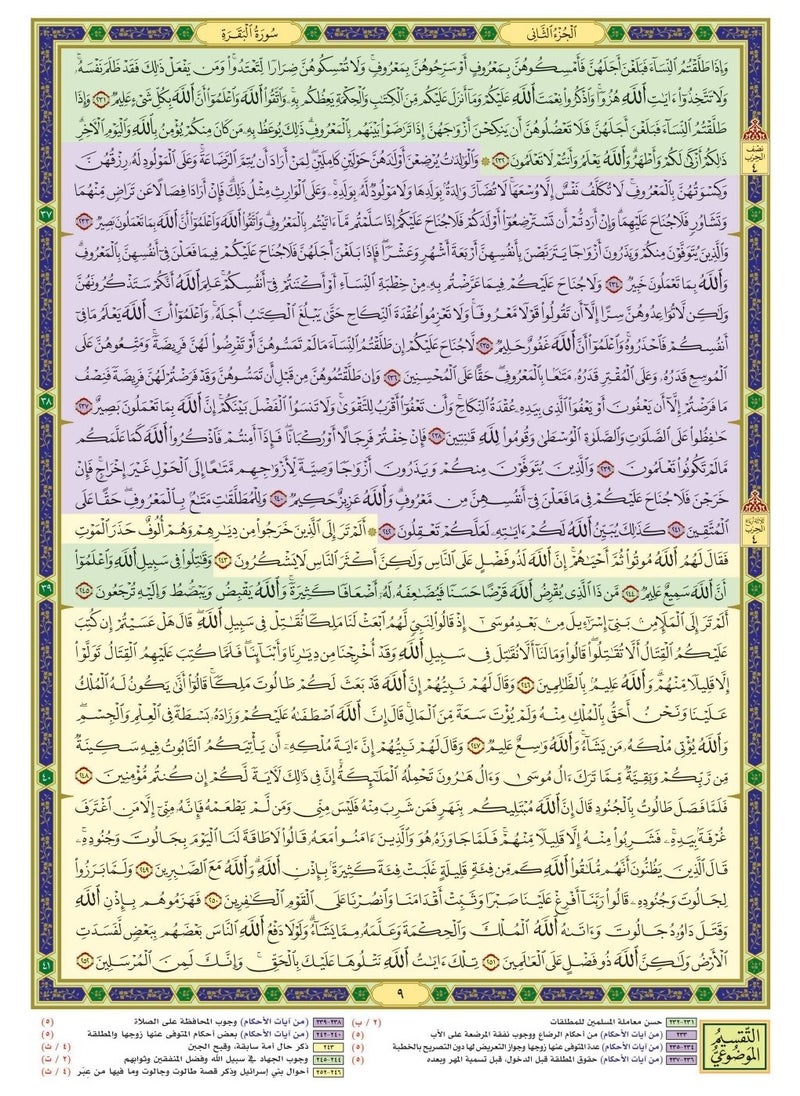 الجزء الثاني
سورة البقرة
وإذا طلقتم النساء فبلغن أجلهن فأمسكوهن بمعروف أو سرحوهن بمعروف ولا تمسكوهن ضرارا لتعتدوا ومن يفعل ذلك فقد ظلم نفسه
ولا تتخذوا ءايت الله هزوا واذكروا نعمت الله عليكم وما أنزل عليكم من الكتب والحكمة يعظكم به واتقوا الله واعلموا أن الله بكل شيء عليم ٢٣١ وإذا
طلقتم النساء فبلغن أجلهن فلا تعضلوهن أن ينكحن أزوجهن إذا ترضوا بينهم بالمعروف ذلك يوعظ به من كان منكم يؤمن بالله واليوم الآخر
ذلكم أزكى لكم وأطهر والله يعلم وأنتم لا تعلمون ٢٣٢ ۞ والولدت يرضعن أولدهن حولين كاملين لمن أراد أن يتم الرضاعة وعلى المولود له رزقهن
وكسوتهن بالمعروف لا تكلف نفس إلا وسعها لا تضار ولدة بولدها ولا مولود له بولده وعلى الوارث مثل ذلك فإن أرادا فصالا عن تراض منهما
وتشاور فلا جناح عليهما وإن أردتم أن تسترضعوا أولدكم فلا جناح عليكم إذا سلمتم ما ءاتيتم بالمعروف واتقوا الله واعلموا أن الله بما تعملون بصير ٢٣٣
والذين يتوفون منكم ويذرون أزوجا يتربصن بأنفسهن أربعة أشهر وعشرا فإذا بلغن أجلهن فلا جناح عليكم فيما فعلن في أنفسهن بالمعروف
والله بما تعملون خبير ٢٣٤ ولا جناح عليكم فيما عرضتم به من خطبة النساء أو أكننتم في أنفسكم علم الله أنكم ستذكرونهن
ولكن لا تواعدوهن سرا إلا أن تقولوا قولا معروفا ولا تعزموا عقدة النكاح حتى يبلغ الكتب أجله واعلموا أن الله يعلم ما في
أنفسكم فاحذروه واعلموا أن الله غفور حليم ٢٣٥ لا جناح عليكم إن طلقتم النساء ما لم تمسوهن أو تفرضوا لهن فريضة ومتعوهن على
الموسع قدره وعلى المقتر قدره متعا بالمعروف حقا على المحسنين ٢٣٦ وإن طلقتموهن من قبل أن تمسوهن وقد فرضتم لهن فريضة فنصف
ما فرضتم إلا أن يعفون أو يعفوا الذي بيده عقدة النكاح وأن تعفوا أقرب للتقوى ولا تنسوا الفضل بينكم إن الله بما تعملون بصير ٢٣٧
حفظوا على الصلوت والصلوة الوسطى وقوموا لله قنتين ٢٣٨ فإن خفتم فرجالا أو ركبانا فإذا أمنتم فاذكروا الله كما علمكم
ما لم تكونوا تعلمون ٢٣٩ والذين يتوفون منكم ويذرون أزوجا وصية لأزوجهم متعا إلى الحول غير إخراج فإن
خرجن فلا جناح عليكم في ما فعلن في أنفسهن من معروف والله عزيز حكيم ٢٤٠ وللمطلقت متع بالمعروف حقا على
المتقين ٢٤١ كذلك يبين الله لكم ءايته لعلكم تعقلون ٢٤٢ ۞ ألم تر إلى الذين خرجوا من ديرهم وهم ألوف حذر الموت
فقال لهم الله موتوا ثم أحيهم إن الله لذو فضل على الناس ولكن أكثر الناس لا يشكرون ٢٤٣ وقتلوا في سبيل الله واعلموا
أن الله سميع عليم ٢٤٤ من ذا الذي يقرض الله قرضا حسنا فيضعفه له أضعافا كثيرة والله يقبض ويبصط وإليه ترجعون ٢٤٥
ألم تر إلى الملإ من بني إسرءيل من بعد موسى إذ قالوا لنبي لهم ابعث لنا ملكا نقتل في سبيل الله قال هل عسيتم إن كتب
عليكم القتال ألا تقتلوا قالوا وما لنا ألا نقتل في سبيل الله وقد أخرجنا من ديرنا وأبنائنا فلما كتب عليهم القتال تولوا
إلا قليلا منهم والله عليم بالظلمين ٢٤٦ وقال لهم نبيهم إن الله قد بعث لكم طالوت ملكا قالوا أنى يكون له الملك
علينا ونحن أحق بالملك منه ولم يؤت سعة من المال قال إن الله اصطفىه عليكم وزاده بسطة في العلم والجسم
والله يؤتي ملكه من يشاء والله وسع عليم ٢٤٧ وقال لهم نبيهم إن ءاية ملكه أن يأتيكم التابوت فيه سكينة
من ربكم وبقية مما ترك ءال موسى وءال هرون تحمله الملئكة إن في ذلك لآية لكم إن كنتم مؤمنين ٢٤٨
فلما فصل طالوت بالجنود قال إن الله مبتليكم بنهر فمن شرب منه فليس مني ومن لم يطعمه فإنه مني إلا من اغترف
غرفة بيده فشربوا منه إلا قليلا منهم فلما جاوزه هو والذين ءامنوا معه قالوا لا طاقة لنا اليوم بجالوت وجنوده
قال الذين يظنون أنهم ملقوا الله كم من فئة قليلة غلبت فئة كثيرة بإذن الله والله مع الصبرين ٢٤٩ ولما برزوا
لجالوت وجنوده قالوا ربنا أفرغ علينا صبرا وثبت أقدامنا وانصرنا على القوم الكفرين ٢٥٠ فهزموهم بإذن الله
وقتل داود جالوت وءاتىه الله الملك والحكمة وعلمه مما يشاء ولولا دفع الله الناس بعضهم ببعض لفسدت
الأرض ولكن الله ذو فضل على العلمين ٢٥١ تلك ءايت الله نتلوها عليك بالحق وإنك لمن المرسلين ٢٥٢
نصف الحزب ٤
ثلاثة أرباع الحزب ٤
٣٧
٣٨
٣٩
٤٠
٤١
٩
التقسيم الموضوعي
٢٣١-٢٣٢ حسن معاملة المسلمين للمطلقات (٢ / ب)
٢٣٣ (من آيات الأحكام) من أحكام الرضاع ووجوب نفقة المرضعة على الأب (٥)
٢٣٤-٢٣٥ (من آيات الأحكام) عدة المتوفى عنها زوجها وجواز التعريض لها دون التصريح بالخطبة (٥)
٢٣٦-٢٣٧ (من آيات الأحكام) حقوق المطلقة قبل الدخول، قبل تسمية المهر وبعده (٥)
٢٣٨-٢٣٩ (من آيات الأحكام) وجوب المحافظة على الصلاة (٥)
٢٤٠-٢٤٢ (من آيات الأحكام) بعض أحكام المتوفى عنها زوجها والمطلقة (٥)
٢٤٣ ذكر حال أمة سابقة، وقبح الجبن (٤ / ث)
٢٤٤-٢٤٥ وجوب الجهاد في سبيل الله وفضل المنفقين وثوابهم (٢ / ت)
٢٤٦-٢٥٢ أحوال بني إسرائيل وذكر قصة طالوت وجالوت وما فيها من عبر (٤ / ث)